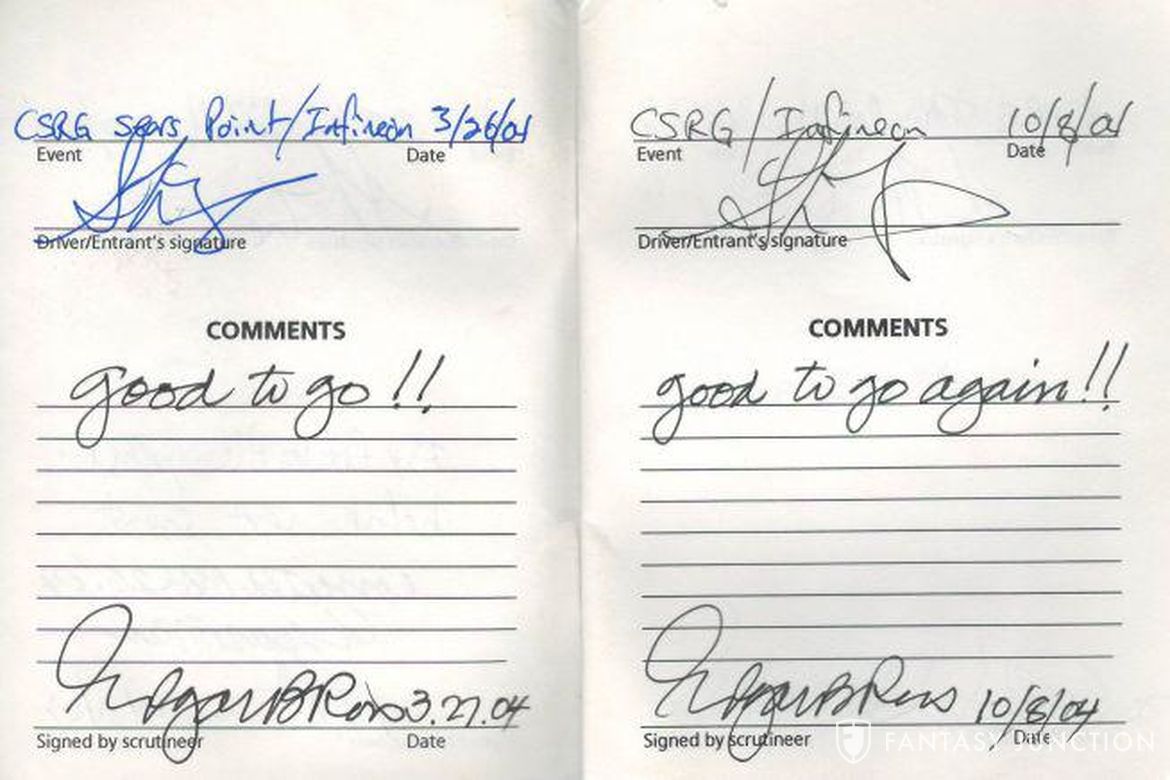 CSRG Sears Point/Infineon 3/26/04
Event Date
Driver/Entrant's signature
COMMENTS
good to go!!
3.27.04
Signed by scrutineer Date
CSRG/Infineon 10/8/04
Event Date
Driver/Entrant's signature
COMMENTS
good to go again!!
10/8/04
Signed by scrutineer Date
FANTASY JUNCTION